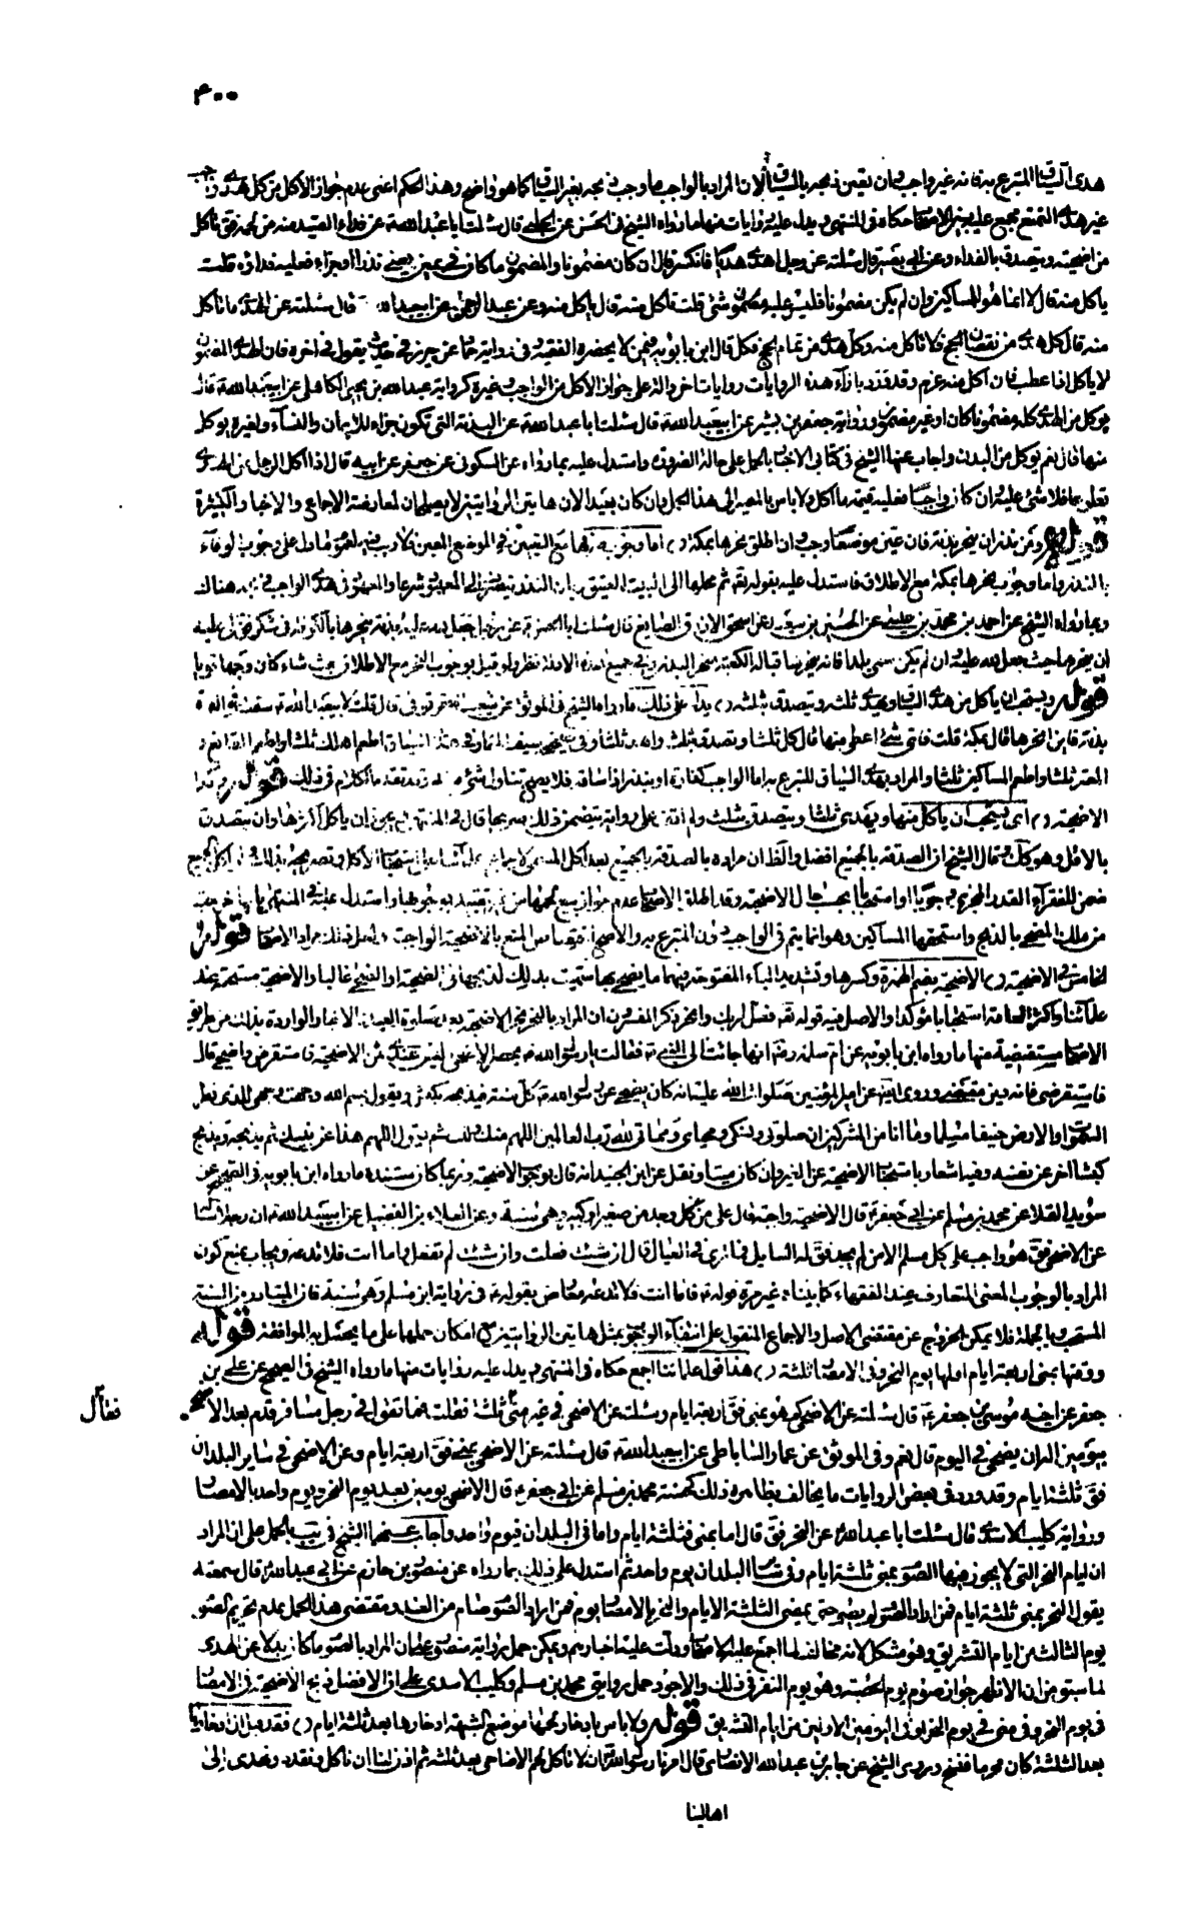 ۴۰۰
هدى السياق المتبرع به فانه غير واجب وان تعين ذبحه بالسياق لان المراد بالواجب ما وجب ذبحه بغير السياق كما هو واضح وهذا الحكم اعنى عدم جواز الاكل من كل هدى واجب
غير هدى التمتع مجمع عليه بين الاصحاب حكاه فى المنتهى ويدل عليه روايات منها ما رواه الشيخ فى الحسن عن الحلبى قال سئلت ابا عبد الله ع عن فداء الصيد منه من لحمه فق ياكل
من اضحيته ويتصدق بالفداء وعن ابى بصير قال سئلته عن رجل اهدى هديا فانكسر قال ان كان مضمونا والمضمون ما كان فى يمين يعنى نذرا او جزاء فعليه فداؤه قلت
ياكل منه قال لا انما هو للمساكين وان لم يكن مضمونا فليس عليه شئ قلت ياكل منه قال ياكل منه وعن عبد الرحمن عن ابيعبدالله قال سئلته عن الهدى ما ياكل
منه قال كل هدى من نقصان الحج فلا تاكل منه وكل هدى من تمام الحج فكل قال ابن بابويه فيمن لا يحضره الفقيه فى رواية حماد عن حريز فى حديث يقول فى اخره فان الهدى المضمون
لا ياكل اذا عطب فان اكل منه غرم وقد ورد بازاء هذه الروايات روايات اخر دالة على جواز الاكل من الواجب غيره كرواية عبد الله بن يحيى الكاهلى عن ابيعبد الله ع قال
يوكل من الهدى كله مضمونا كان او غير مضمون ورواية جعفر بن بشير عن ابيعبد الله ع قال سئلت ابا عبد الله ع عن البدنة التى تكون جزاء للايمان والنساء ولغيره يوكل
منها قال نعم يوكل من البدن واجاب عنها الشيخ فى كتابى الاخبار بالحمل على حالة الضرورة واستدل عليه بما رواه عن السكونى عن جعفر عن ابيه قال اذا اكل الرجل من الهدى
تطوعا فلا شئ عليه وان كان واجبا فعليه قيمة ما اكل ولا باس بالمصير الى هذا الحمل وان كان بعيدا لان هاتين الروايتين لا يصلحان لمعارضة الاجماع والاخبار الكثيرة
قوله ومن نذر ان ينحر بدنة فان عين موضعا وجب وان اطلق نحرها بمكة اما وجوب نحرها مع التعيين فى الموضع المعين فلا ريب فيه لعموم ما دل على وجوب الوفاء
بالنذر واما وجوب نحرها بمكة مع الاطلاق فاستدل عليه بقوله تعه ثم محلها الى البيت العتيق
وبما رواه الشيخ عن احمد بن محمد بن عيسى عن الحسين بن سعيد عن اسحق الازرق الصايغ قال سئلت ابا الحسن ع عن رجل جعل لله عليه بدنة ينحرها بالكوفة فى شكر فق لى عليه
ان ينحرها حيث جعل لله عليه وان لم يكن سمى بلدا فانه ينحرها قبالة الكعبة منحر البدن وفى جميع هذه الادلة نظر ولو قيل بوجوب النحر مع الاطلاق حيث شاء كان وجها قويا
قوله ويستحب ان ياكل من هدى السياق ويهدى ثلثه ويتصدق بثلثه يدل على ذلك ما رواه الشيخ فى الموثق عن شعيب العقرقوفى قال قلت لابيعبد الله ع سقت فى العمرة
بدنة فاين انحرها قال بمكة قلت فاى شئ اعطى منها قال كل ثلثا وتصدق بثلث واهد ثلثا
المعتر ثلثا واطعم المساكين ثلثا والمراد بهدى السياق المتبرع به اما الواجب كفارة او بنذر اذا ساقه فلا يصح تناول شئ منه وقد تقدم الكلام فى ذلك قوله وكذا
الاضحية اى يستحب ان ياكل منها ويهدى ثلثا ويتصدق بثلث ولم اقف على رواية تتضمن ذلك صريحا قال فى المنتهى ويجوز ان ياكل اكثرها وان يتصدق
بالاقل وقال الشيخ ان الصدقة بالجميع افضل والظ ان مراده بالصدقة بالجميع بعد اكل المسمى
ضمن للفقراء القدر المجزى وجوبا او استحبابا بحسب حال الاضحية وقد اطلق الاصحاب عدم جواز بيع لحمها من غير تقييد بوجوبها واستدل عليه فى المنتهى بانها خرجت
من ملك المضحى بالذبح واستحقها المساكين وهو انما يتم فى الواجب دون المتبرع به والاصح اختصاص المنع بالاضحية الواجبة ولعل ذلك مراد الاصحاب قوله
الخامس فى الاضحية الاضحية بضم الهمزة وكسرها وتشديد الياء المفتوحة فيهما ما يضحى بها سميت بذلك لذبحها فى الضحية او الضحى غالبا والاضحية مستحبة عند
علمائنا واكثر العامة استحبابا مؤكدا والاصل فيه قوله تعه فصل لربك وانحر ذكر المفسرون ان المراد بالنحر نحر الاضحية بعد صلوة العيد والاخبار الواردة بذلك من طريق
الاصحاب مستفيضة منها ما رواه ابن بابويه عن ام سلمة رضى انها جائت الى النبى ص فقالت يا رسول الله ص يحضر الاضحى وليس عندى ثمن الاضحية فاستقرض واضحى قال
فاستقرضى فانه دين مقضى وروى ايضا عن امير المؤمنين صلوات الله عليه انه كان يضحى عن رسول الله ص كل سنة فيذبحه بكبشين ويقول بسم الله وجهت وجهى للذى فطر
السموات والارض حنيفا مسلما وما انا من المشركين ان صلوتى ونسكى ومحياى ومماتى لله رب العالمين اللهم منك ولك ثم يقول اللهم هذا عن نبيك ثم يذبحه ويذبح
كبشا اخر عن نفسه وفيه اشعار باستحباب الاضحية عن الغير وان كان ميتا ونقل عن ابن الجنيد انه قال بوجوب الاضحية وربما كان مستنده ما رواه ابن بابويه فى الصحيح عن
سويد القلا عن محمد بن مسلم عن ابى جعفر ع قال الاضحية واجبة على من وجد من صغير او كبير وهى سنة وعن العلاء بن الفضيل عن ابيعبد الله ع ان رجلا سئله
عن الاضحى فق هو واجب على كل مسلم الا من لم يجد فق له السايل فما ترى فى العيال قال ان شئت فعلت وان شئت لم تفعل فاما انت فلا تدعه ويجاب بمنع كون
المراد بالوجوب المعنى المتعارف عند الفقهاء كما بيناه غير مرة قوله ع فاما انت فلا تدعه معارض بقوله ع فى رواية ابن مسلم وهى سنة فان المتبادر من السنة
المستحب وبالجملة فلا يمكن الخروج عن مقتضى الاصل والاجماع المنقول على انتفاء الوجوب بمثل هاتين الروايتين مع امكان حملهما على ما يحصل به الموافقة قوله
ووقتها بمنى اربعة ايام اولها يوم النحر وفى الامصار ثلثة هذا قول علمائنا اجمع حكاه فى المنتهى ويدل عليه روايات منها ما رواه الشيخ فى الصحيح عن على بن
جعفر عن اخيه موسى بن جعفر ع قال سئلته عن الاضحى كم هو بمنى فق اربعة ايام وسئلته عن الاضحى فى غير منى ثلثة فقلت فما تقول فى رجل مسافر قدم بعد الاضحى
فقال
بيومين اله ان يضحى فى اليوم قال نعم وفى الموثق عن عمار الساباطى عن ابيعبد الله ع قال سئلته عن الاضحى بمنى فق اربعة ايام وعن الاضحى فى ساير البلدان
فق ثلثة ايام وقد ورد فى بعض الروايات ما يخالف بظاهره ذلك كحسنة محمد بن مسلم عن ابى جعفر ع قال الاضحى يومين بعد يوم النحر ويوم واحد بالامصار
ورواية كليب الاسدى قال سئلت ابا عبد الله ع عن النحر فق قال اما بمنى فثلثة ايام واما فى البلدان فيوم واحد واجاب عنهما الشيخ فى يب بالحمل على ان المراد
ان ايام النحر التى لا يجوز فيها الصوم بمنى ثلثة ايام وفى ساير البلدان يوم واحد ثم استدل على ذلك بما رواه عن منصور بن حازم عن ابى عبد الله ع قال سمعته
يقول النحر بمنى ثلثة ايام فمن اراد الصوم لم يصم حتى يمضى الثلثة الايام والنحر بالامصار يوم فمن اراد الصوم صام من الغد ومقتضى هذا الحمل عدم تحريم الصوم
يوم الثالث من ايام التشريق وهو مشكل لانه مخالف لما اجمع عليه الاصحاب ودلت عليه اخبارهم ويمكن حمل رواية منصور على ان المراد بالصوم ما كان بدلا عن الهدى
لما سبق من ان الاظهر جواز صوم يوم الحصبة وهو يوم النفر فى ذلك والاجود حمل روايتى محمد بن مسلم وكليب الاسدى على ان الافضل ذبح الاضحية فى الامصار
فى يوم النحر وفى منى فى يوم النحر او فى اليومين الاولين من ايام التشريق قوله ولا باس بادخار لحمها موضع الشبهة ادخارها بعد ثلثة ايام فقد قيل ان ادخارها
بعد الثلثة كان محرما فنسخ وروى الشيخ عن جابر بن عبد الله الانصارى قال امرنا رسول الله ص ان لا ناكل لحم الاضاحى بعد ثلثة ثم اذن لنا ان ناكل ونقدد ونهدى الى
اهالينا